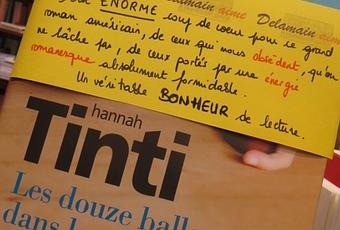 Delamain aime
Delamain aime
ENORME coup de coeur pour ce grand
roman américain, de ceux qui nous obsèdent, qu'on
ne lâche pas, de ceux portés par une énergie
romanesque absolument formidable.
Un véritable BONHEUR de lecture.
hannah
Tinti
Les douze ball
dans